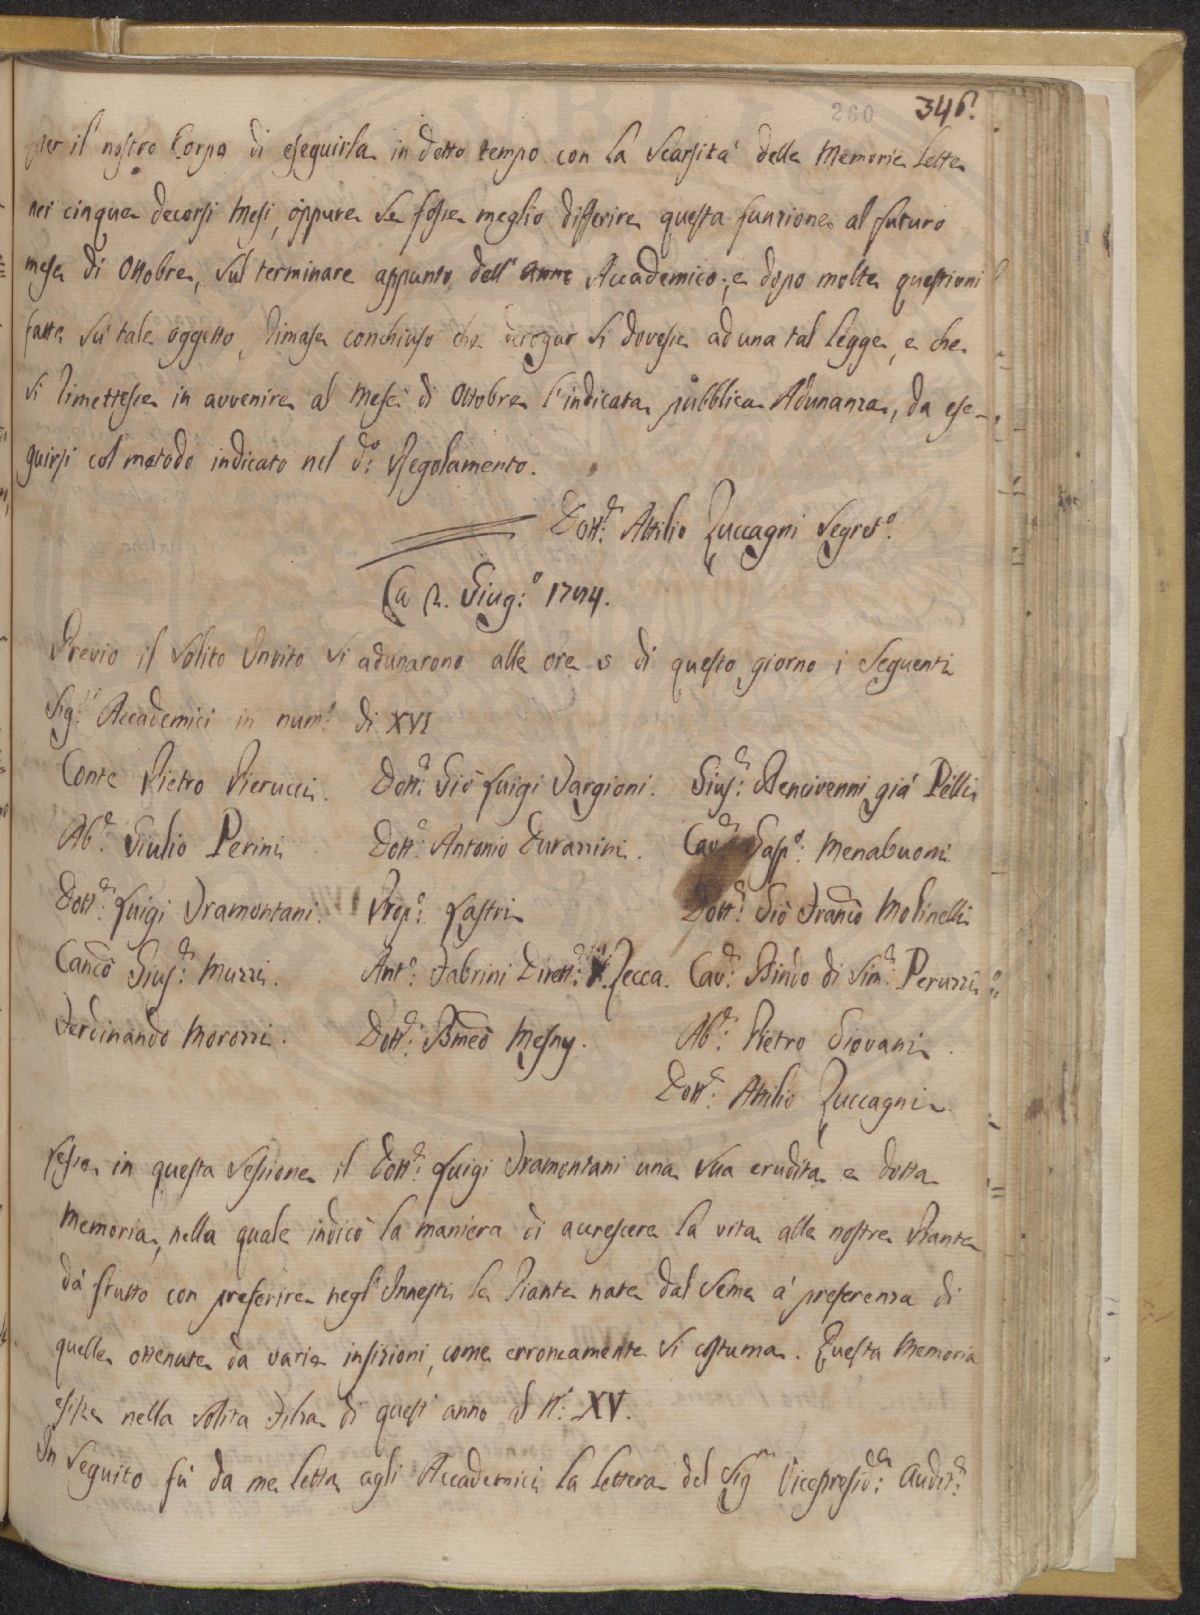 260 346.
per il nostro Corpo di eseguirla in detto tempo con la scarsità delle Memorie lette
nei cinque decorsi Mesi, oppure se fosse meglio differire questa funzione al futuro
mese di Ottobre, sul terminare appunto dell' Anno Accademico; e dopo molte questioni
fatte su tale oggetto, rimase conchiuso che derogar si dovesse ad una tal legge, e che
si rimettesse in avvenire al Mese di Ottobre l'indicata pubblica Adunanza, da ese-
guirsi col metodo indicato nel d.º Regolamento.
Dott.e Attilio Zuccagni Segret.º
Giug.º 1794.
Previo il solito Invito si adunarono alle ore 5 di questo giorno i seguenti
Sig.ri Accademici in num.º di XVI
Conte Pietro Pierucci. Dott.e Giō Luigi Targioni. Gius.e Bencivenni già Pelli
Ab.e Giulio Perini Dott.e Antonio Durazzini. Cav.e Gasp.º Menabuoni
Dott.e Luigi Tramontani. Prop.º Lastri Dott.e Giō Francō Molinelli
Cancō Gius.e Muzzi. Ant.º Fabrini Dirett.e Zecca. Cav.e Bindo di Sim.e Peruzzi
Ferdinando Morozzi. Dott.e Bmeō Mesny. Ab.e Pietro Giovani
Dott.e Attilio Zuccagni
Lesse in questa sessione il Dott.e Luigi Tramontani una sua erudita e dotta
Memoria, nella quale indicò la maniera di accrescere la vita alle nostre Piante
da frutto con preferire negl' Innesti le Piante nate dal seme a preferenza di
quelle ottenute da varie insizioni, come erroneamente si costuma. Questa Memoria
esiste nella solita Filza di quest' anno al N.º XV.
In seguito fù da me letta agli Accademici la lettera del Sig.r Vicepresid.e Audit.e